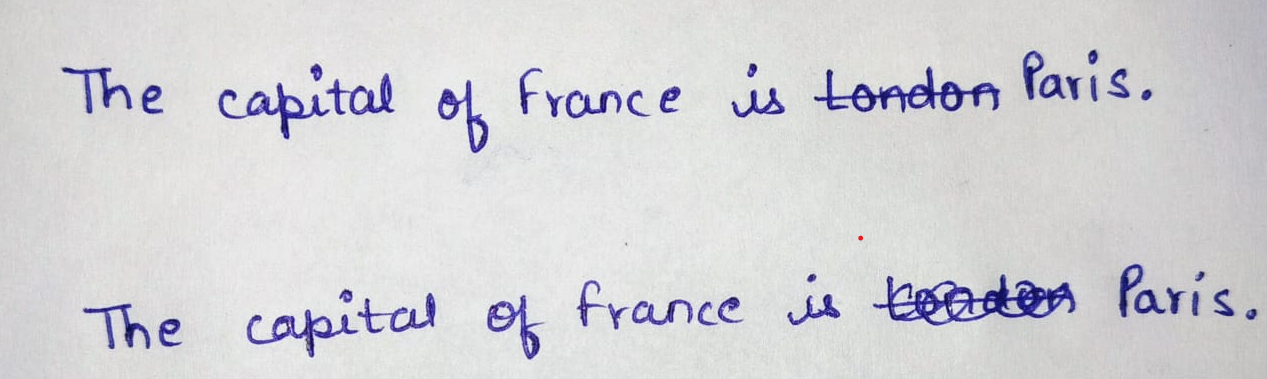 The capital of France is ~~London~~ Paris.
The capital of france is ~~London~~ Paris.